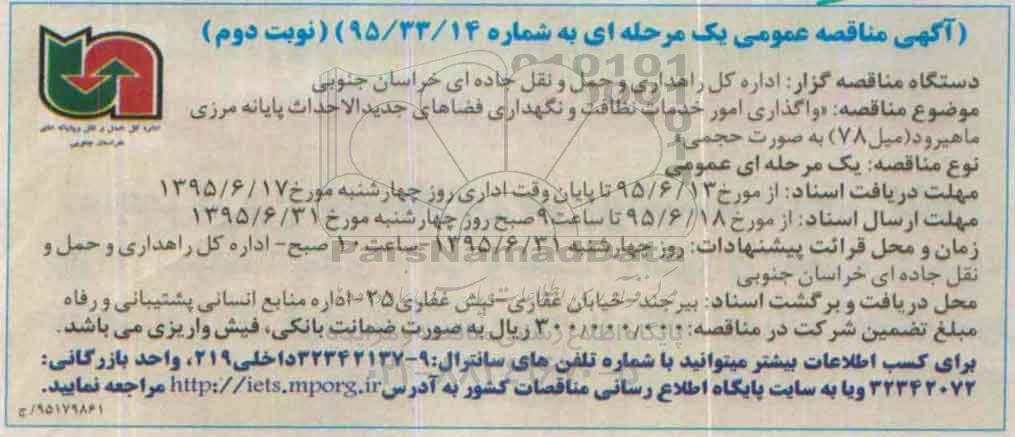 (آگهی مناقصه عمومی یک مرحله ای به شماره ۹۵/۳۳/۱۴) (نوبت دوم)
اداره کل حمل و نقل و پایانه های
خراسان جنوبی
دستگاه مناقصه گزار: اداره کل راهداری و حمل و نقل جاده ای خراسان جنوبی
موضوع مناقصه: «واگذاری امور خدمات نظافت و نگهداری فضاهای جدیدالاحداث پایانه مرزی
ماهیرود(میل۷۸) به صورت حجمی»
نوع مناقصه: یک مرحله ای عمومی
مهلت دریافت اسناد: از مورخ ۹۵/۶/۱۳ تا پایان وقت اداری روز چهارشنبه مورخ ۱۳۹۵/۶/۱۷
مهلت ارسال اسناد: از مورخ ۹۵/۶/۱۸ تا ساعت ۹ صبح روز چهارشنبه مورخ ۱۳۹۵/۶/۳۱
زمان و محل قرائت پیشنهادات: روز چهارشنبه ۱۳۹۵/۶/۳۱- ساعت ۱۰ صبح- اداره کل راهداری و حمل و
نقل جاده ای خراسان جنوبی
محل دریافت و برگشت اسناد: بیرجند- خیابان غفاری- نبش غفاری ۲۵- اداره منابع انسانی پشتیبانی و رفاه
مبلغ تضمین شرکت در مناقصه: ۳۰۰/۰۰۰/۰۰۰ ریال به صورت ضمانت بانکی، فیش واریزی می باشد.
برای کسب اطلاعات بیشتر میتوانید با شماره تلفن های سانترال:۹-۳۲۳۴۲۱۳۷داخلی۲۱۹، واحد بازرگانی:
۳۲۳۴۲۰۷۲ ویا به سایت پایگاه اطلاع رسانی مناقصات کشور به آدرس http://iets.mporg.ir مراجعه نمایید.
۹۵۱۷۹۸۶۱/ج
ParsNamadData